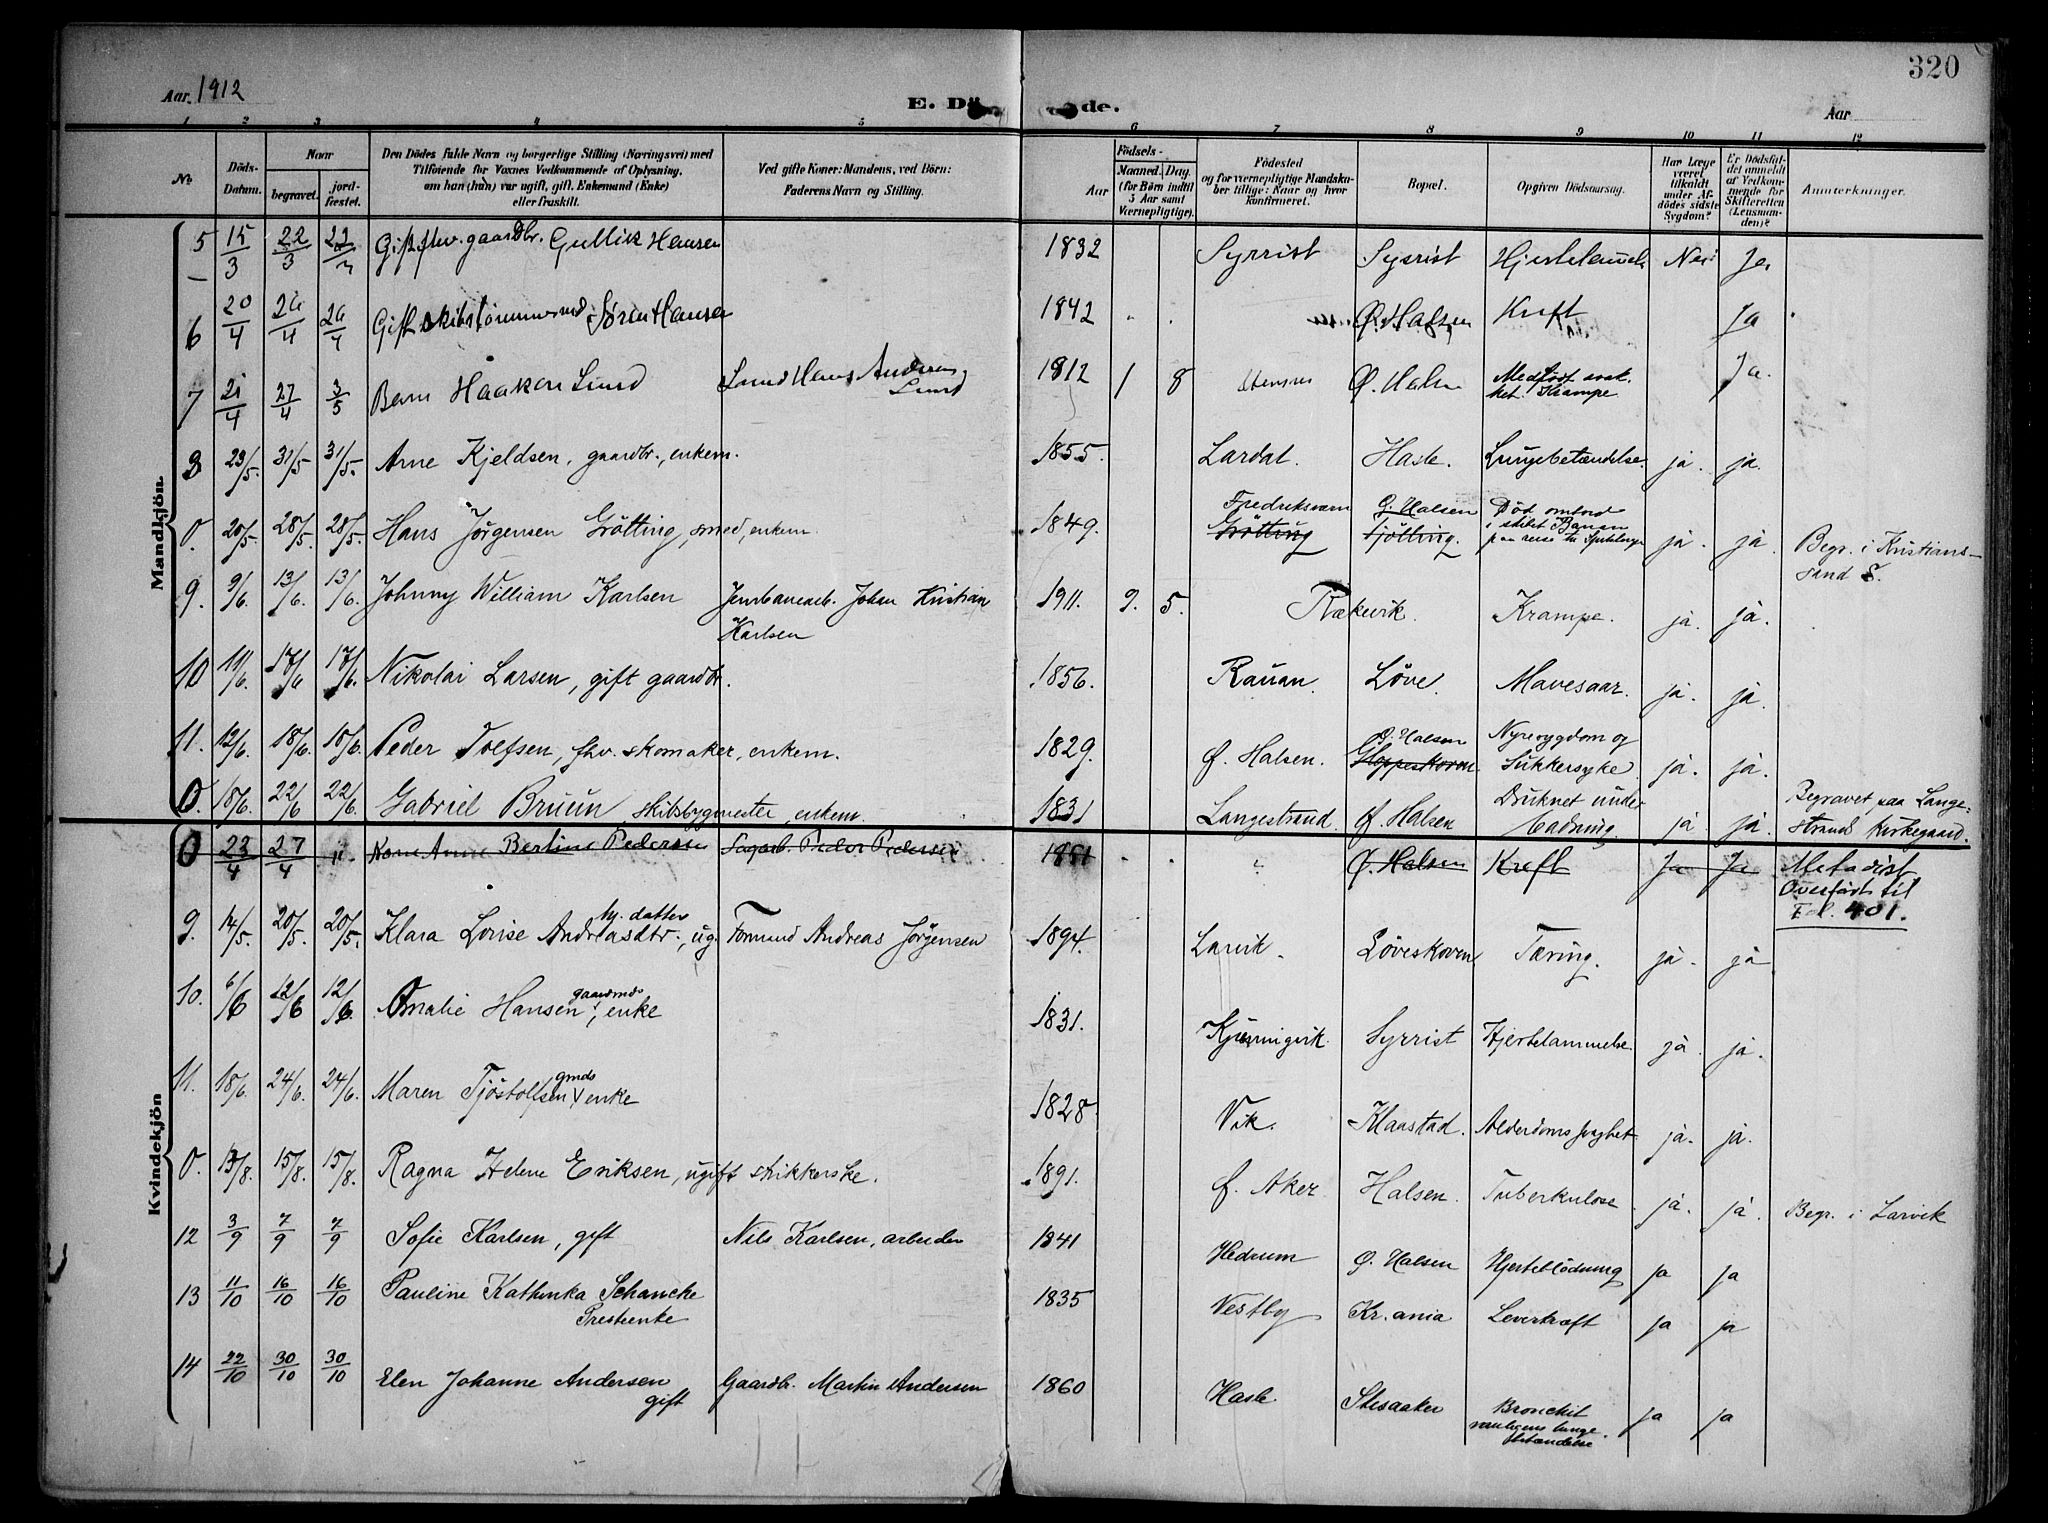 320
Aar 1912
E. Dö de.
Aar
1 2 3 4 5 6 7 8 9 10 11 12
Nr. Döds-Datum. Naar begravet. jord-fæstet. Den Dödes fulde Navn og borgerlige Stilling (Næringsvei) med Tilföiende for Voxnes Vedkommende af Oplysning, om han (hun) var ugift, gift, Enkemand (Enke) eller fraskilt. Ved gifte Koner: Mandens, ved Börn: Faderens Navn og Stilling. Födsels- Aar Maaned. Dag. (for Börn indtil 5 Aar samt Værnepligtige). Födested og for værnepligtige Mandskaber tillige: Naar og hvor konfirmeret. Bopæl. Opgiven Dödsaarsag. Har Læge været tilkaldt under Afdödes sidste Sygdom? Er Dödsfaldet anmeldt af Vedkommende for Skifteretten (Lensmanden)? Anmærkninger.
Mandkjön.
5 15/3 22/3 22/3 Gift fhv. gaardbr. Gullik Hansen 1832 Syrrist Syrrist Nei Ja
6 20/4 26/4 26/4 Gift Søren Hansen 1842 Ø. Halsen Kreft Ja
7 21/4 27/4 3/5 Barn Haakon Lund Hans Andersen Lund 1812 1 8 Ø. Halsen Medfødt svak-het. Krampe Ja.
8 23/5. 31/5 31/5. Arne Kjeldsen, gaardbr., enkem. 1855. Lardal. Hasle. Lungebetændelse. ja. ja.
0. 20/5. 28/5. 28/5. Hans Jørgensen Grøtting, smed, enkem. 1849. Fredriksværn Grøtting Ø. Halsen Tjølling. Død ombord i skibet Banan paa reise til ja. ja. Begr. i Kristians-sand S.
9. 9/6. 13/6. 13/6. Johnny William Karlsen Jernbanearb. Johan Kristian Karlsen 1911. 9. 5. Rækevik. Krampe. ja. ja.
10 11/6. 17/6 17/6. Nikolai Larsen, gift gaardbr. 1856. Rauan. Løve. Mavesaar. ja. ja.
11. 12/6. 18/6. 18/6. Peder Tolfsen, fhv. skomaker, enkem. 1829. Ø. Halsen. Ø. Halsen Gloppeskoven. Nyresygdom og Sukkersyke. ja. ja.
0. 18/6. 22/6 22/6. Gabriel Bruun, skibsbygmester, enkem. 1831 Langestrand. Ø. Halsen Druknet under badning. ja. ja. Begravet paa Lange-strands kirkegaard.
Kvindekjön
0 23/4 27/4 " Kone Anne Bertine Pedersen Sagarb. Peder Pedersen 1851 Ø. Halsen Kreft Ja Ja Metodist Overført til Fol. 401.
9. 14/5. 20/5. 20/5. Klara Lovise Andreasdtr., ug. hj. datter Formand Andreas Jørgensen 1894. Larvik. Løveskoven Tæring. ja. ja
10. 6/6 12/6 12/6. Amalie Hansen, gaardmds enke 1831. Kjønnigvik. Syrrist Hjertelammelse. ja. ja.
11. 18/6. 24/6. 24/6. Maren Tjøstolfsen gmds enke 1828. Vik. Klaastad. Alderdomssvaghet. ja. ja.
0. 13/8. 15/8. 15/8. Ragna Helene Eriksen, ugift strikkerske. 1891. Ø. Aker. Halsen. Tuberkulose. ja. ja. Begr. i Larvik
12 3/9 7/9 7/9 Sofie Karlsen, gift Nils Karlsen, arbeider 1841 Hedrum Ø. Halsen Hjerteblödning ja ja
13 11/10 16/10 16/10 Pauline Kathinka Schancke Presteenke 1835 Vestby Kr.ania Leverkræft ja ja
14 22/10 30/10 30/10 Elen Johanne Andersen gift Gaardbr. Martin Andersen 1860 Hasle. Stesaaker Bronchit lunge-betændelse ja ja